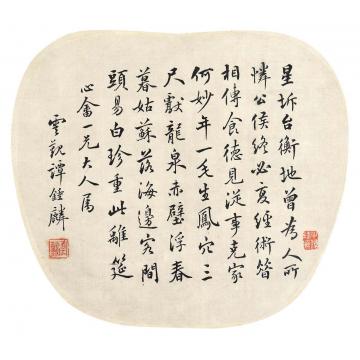 星坼台衡地曾為人所
憐公侯終必復經術昔
相傳食德見從事克家
何妙年一毛生鳳穴三
尺獻龍泉赤壁浮春
暮姑蘇落海邊客間
頭易白珍重此離筵
心畬一兄大人屬
雲覲譚鍾麟